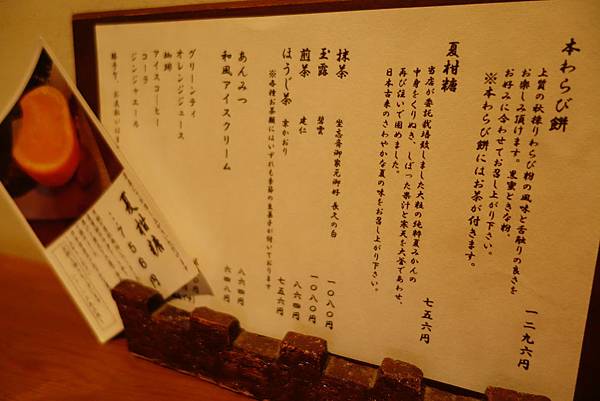 本わらび餅 一二九六円
上質の秋採りわらび粉の風味と舌触りの良さを
お楽しみ頂けます。黒蜜ときな粉、
お好みに合わせてお召し上がり下さい。
※本わらび餅にはお茶が付きます。
夏柑糖 七五六円
当店が委託栽培致しました大粒の純粋夏みかんの
中身をくりぬき、しぼった果汁と寒天を大釜であわせ、
再び注いで固めました。
日本古来のさわやかな夏の味をお召し上がり下さい。
抹茶 坐忘斎御家元御好 長久の白 一〇八〇円
玉露 碧雲 一〇八〇円
煎茶 建仁 八六四円
ほうじ茶 京かおり 七五六円
※各種お茶類にはいずれも季節の生菓子が付いております
あんみつ 八六四円
和風アイスクリーム 六四八円
グリーンティ
オレンジジュース
珈琲
アイスコーヒー
コーラ
ジンジャエール
夏柑糖
七五六円